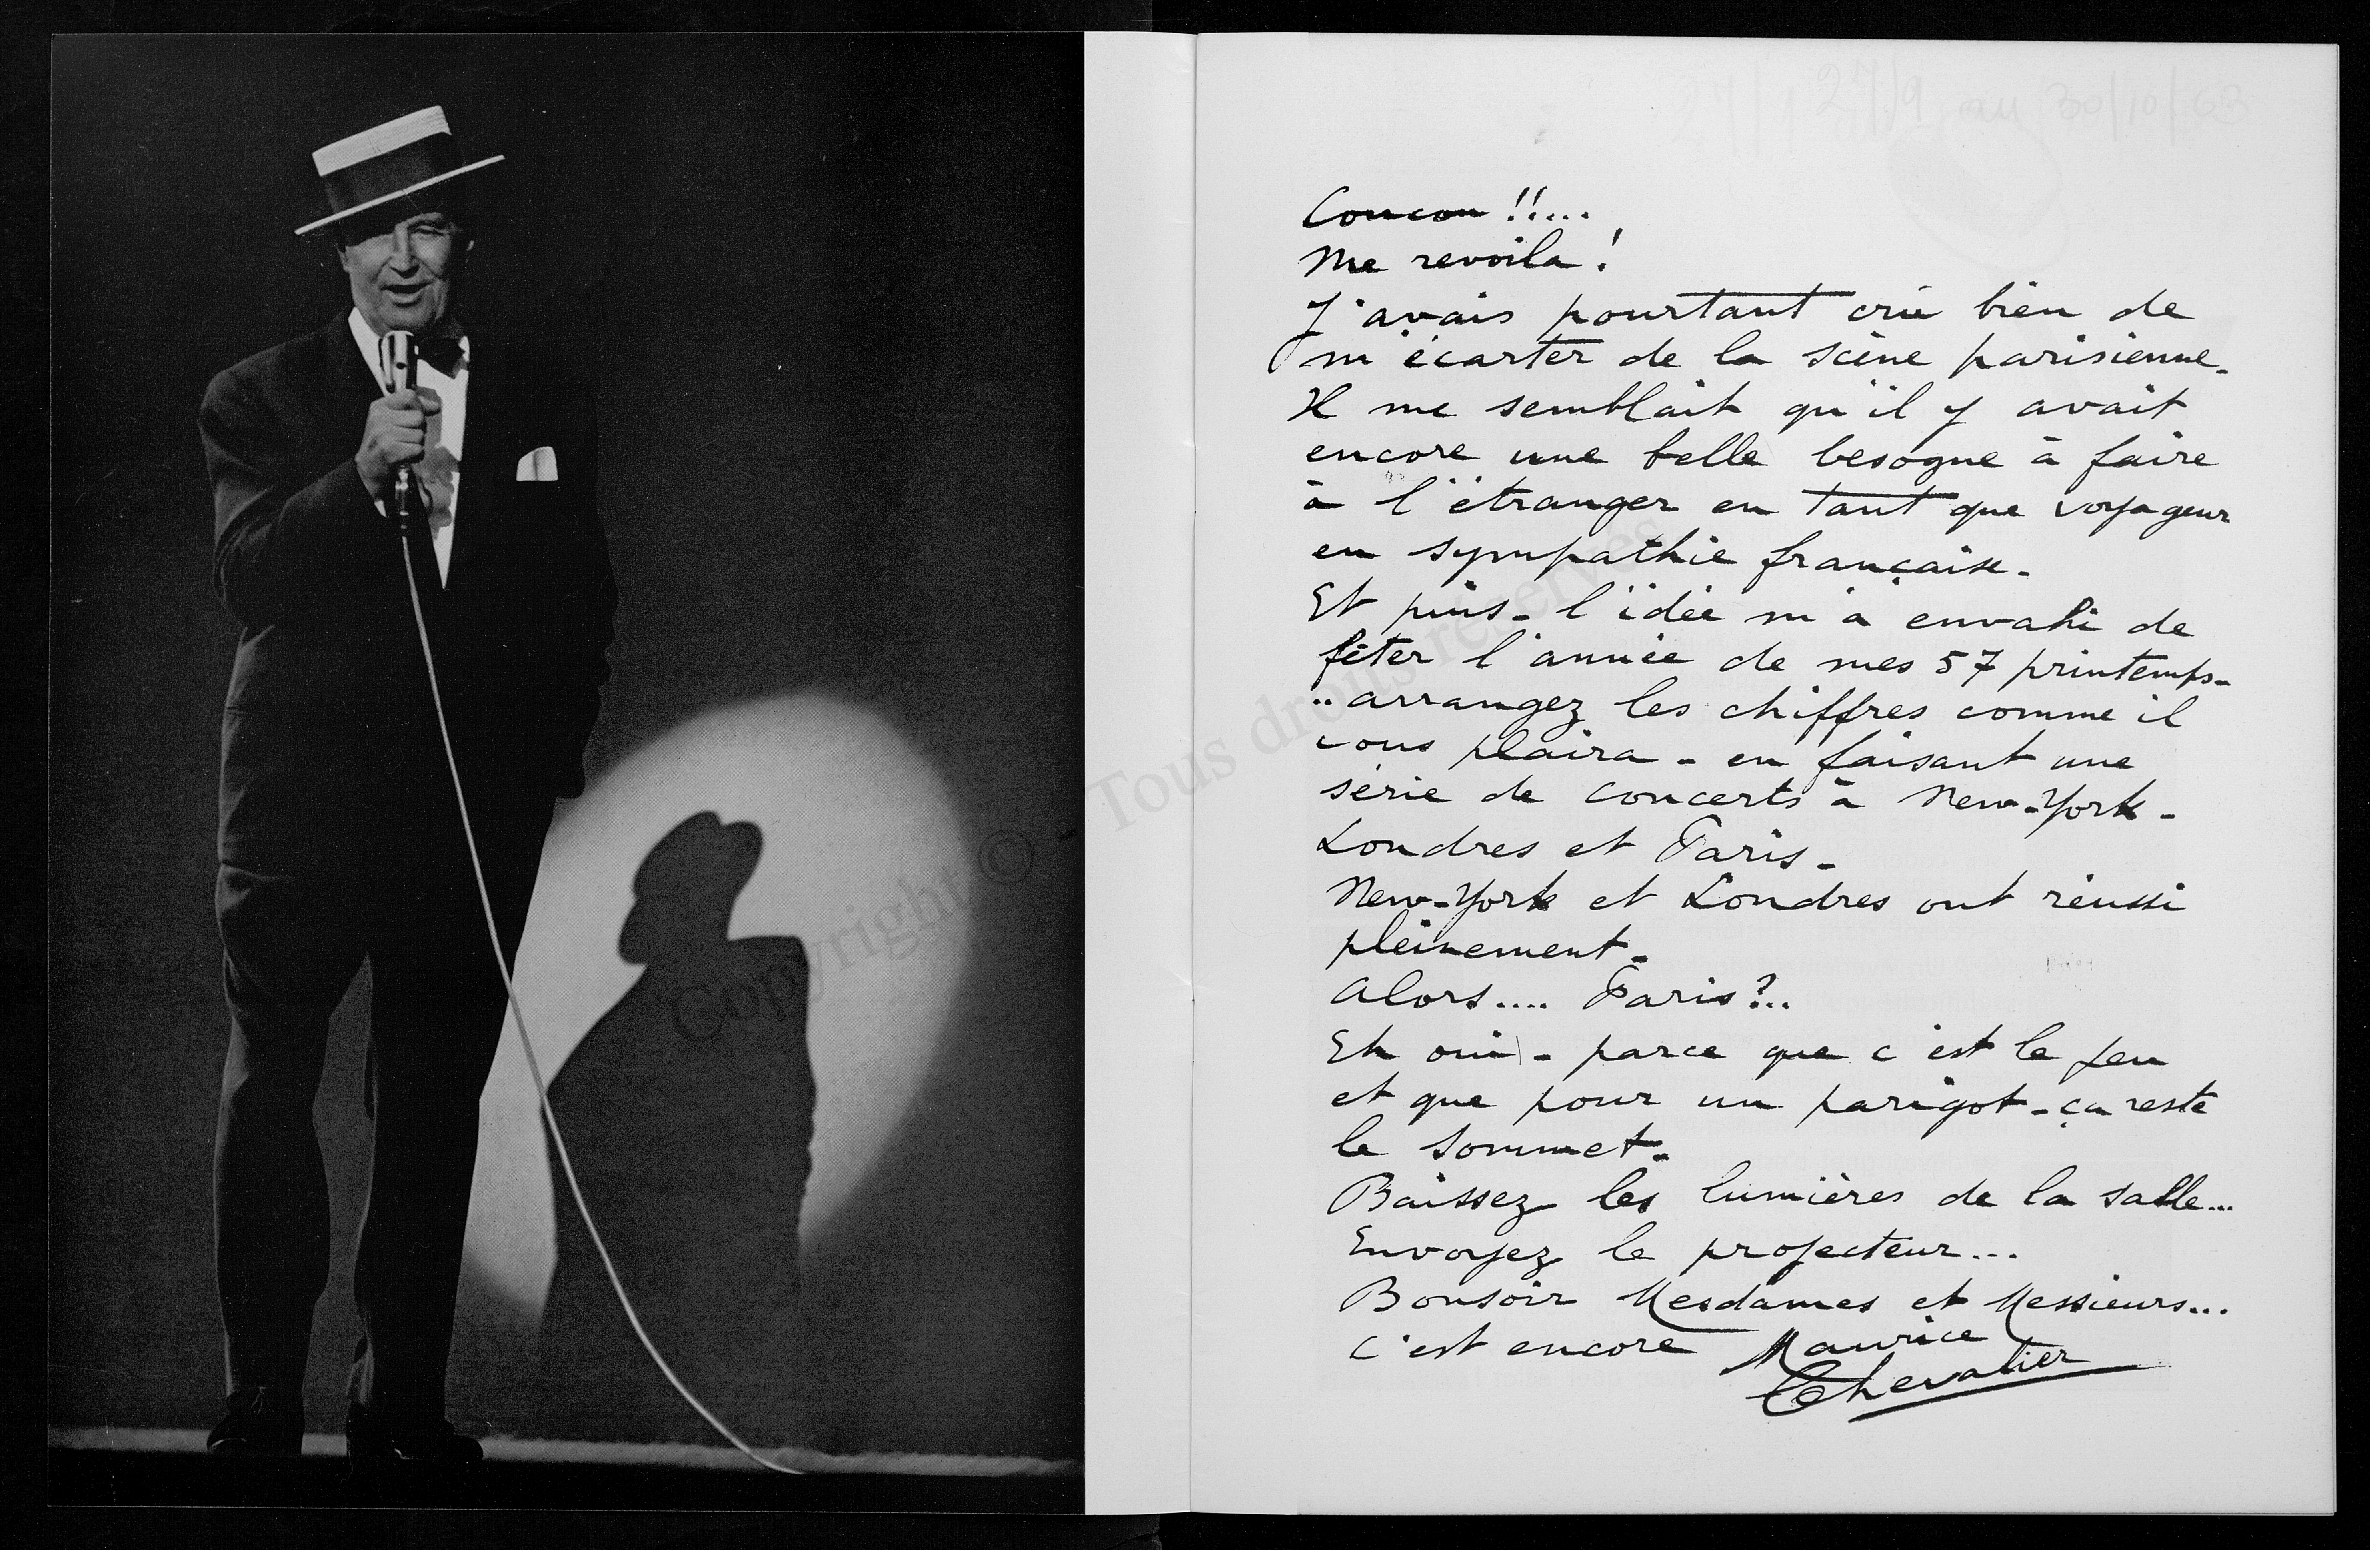 27/9 au 30/10/63
Coucou !!....
Me revoila !
J'avais pourtant crû bien de
m'écarter de la scène parisienne.
Il me semblait qu'il y avait
encore une belle besogne à faire
à l'étranger en tant que voyageur
en sympathie française.
Et puis - l'idée m'a envahi de
fêter l'année de mes 57 printemps -
.. arrangez les chiffres comme il
vous plaira - en faisant une
série de concerts à New-York -
Londres et Paris -
New-York et Londres ont réussi
pleinement -
Alors.... Paris ?..
Eh oui - parce que c'est le jeu
et que pour un parigot - ça reste
le sommet -
Baissez les lumières de la salle...
Envoyez le projecteur...
Bonsoir Mesdames et Messieurs...
C'est encore Maurice
Chevalier
Copyright © - Tous droits réservés